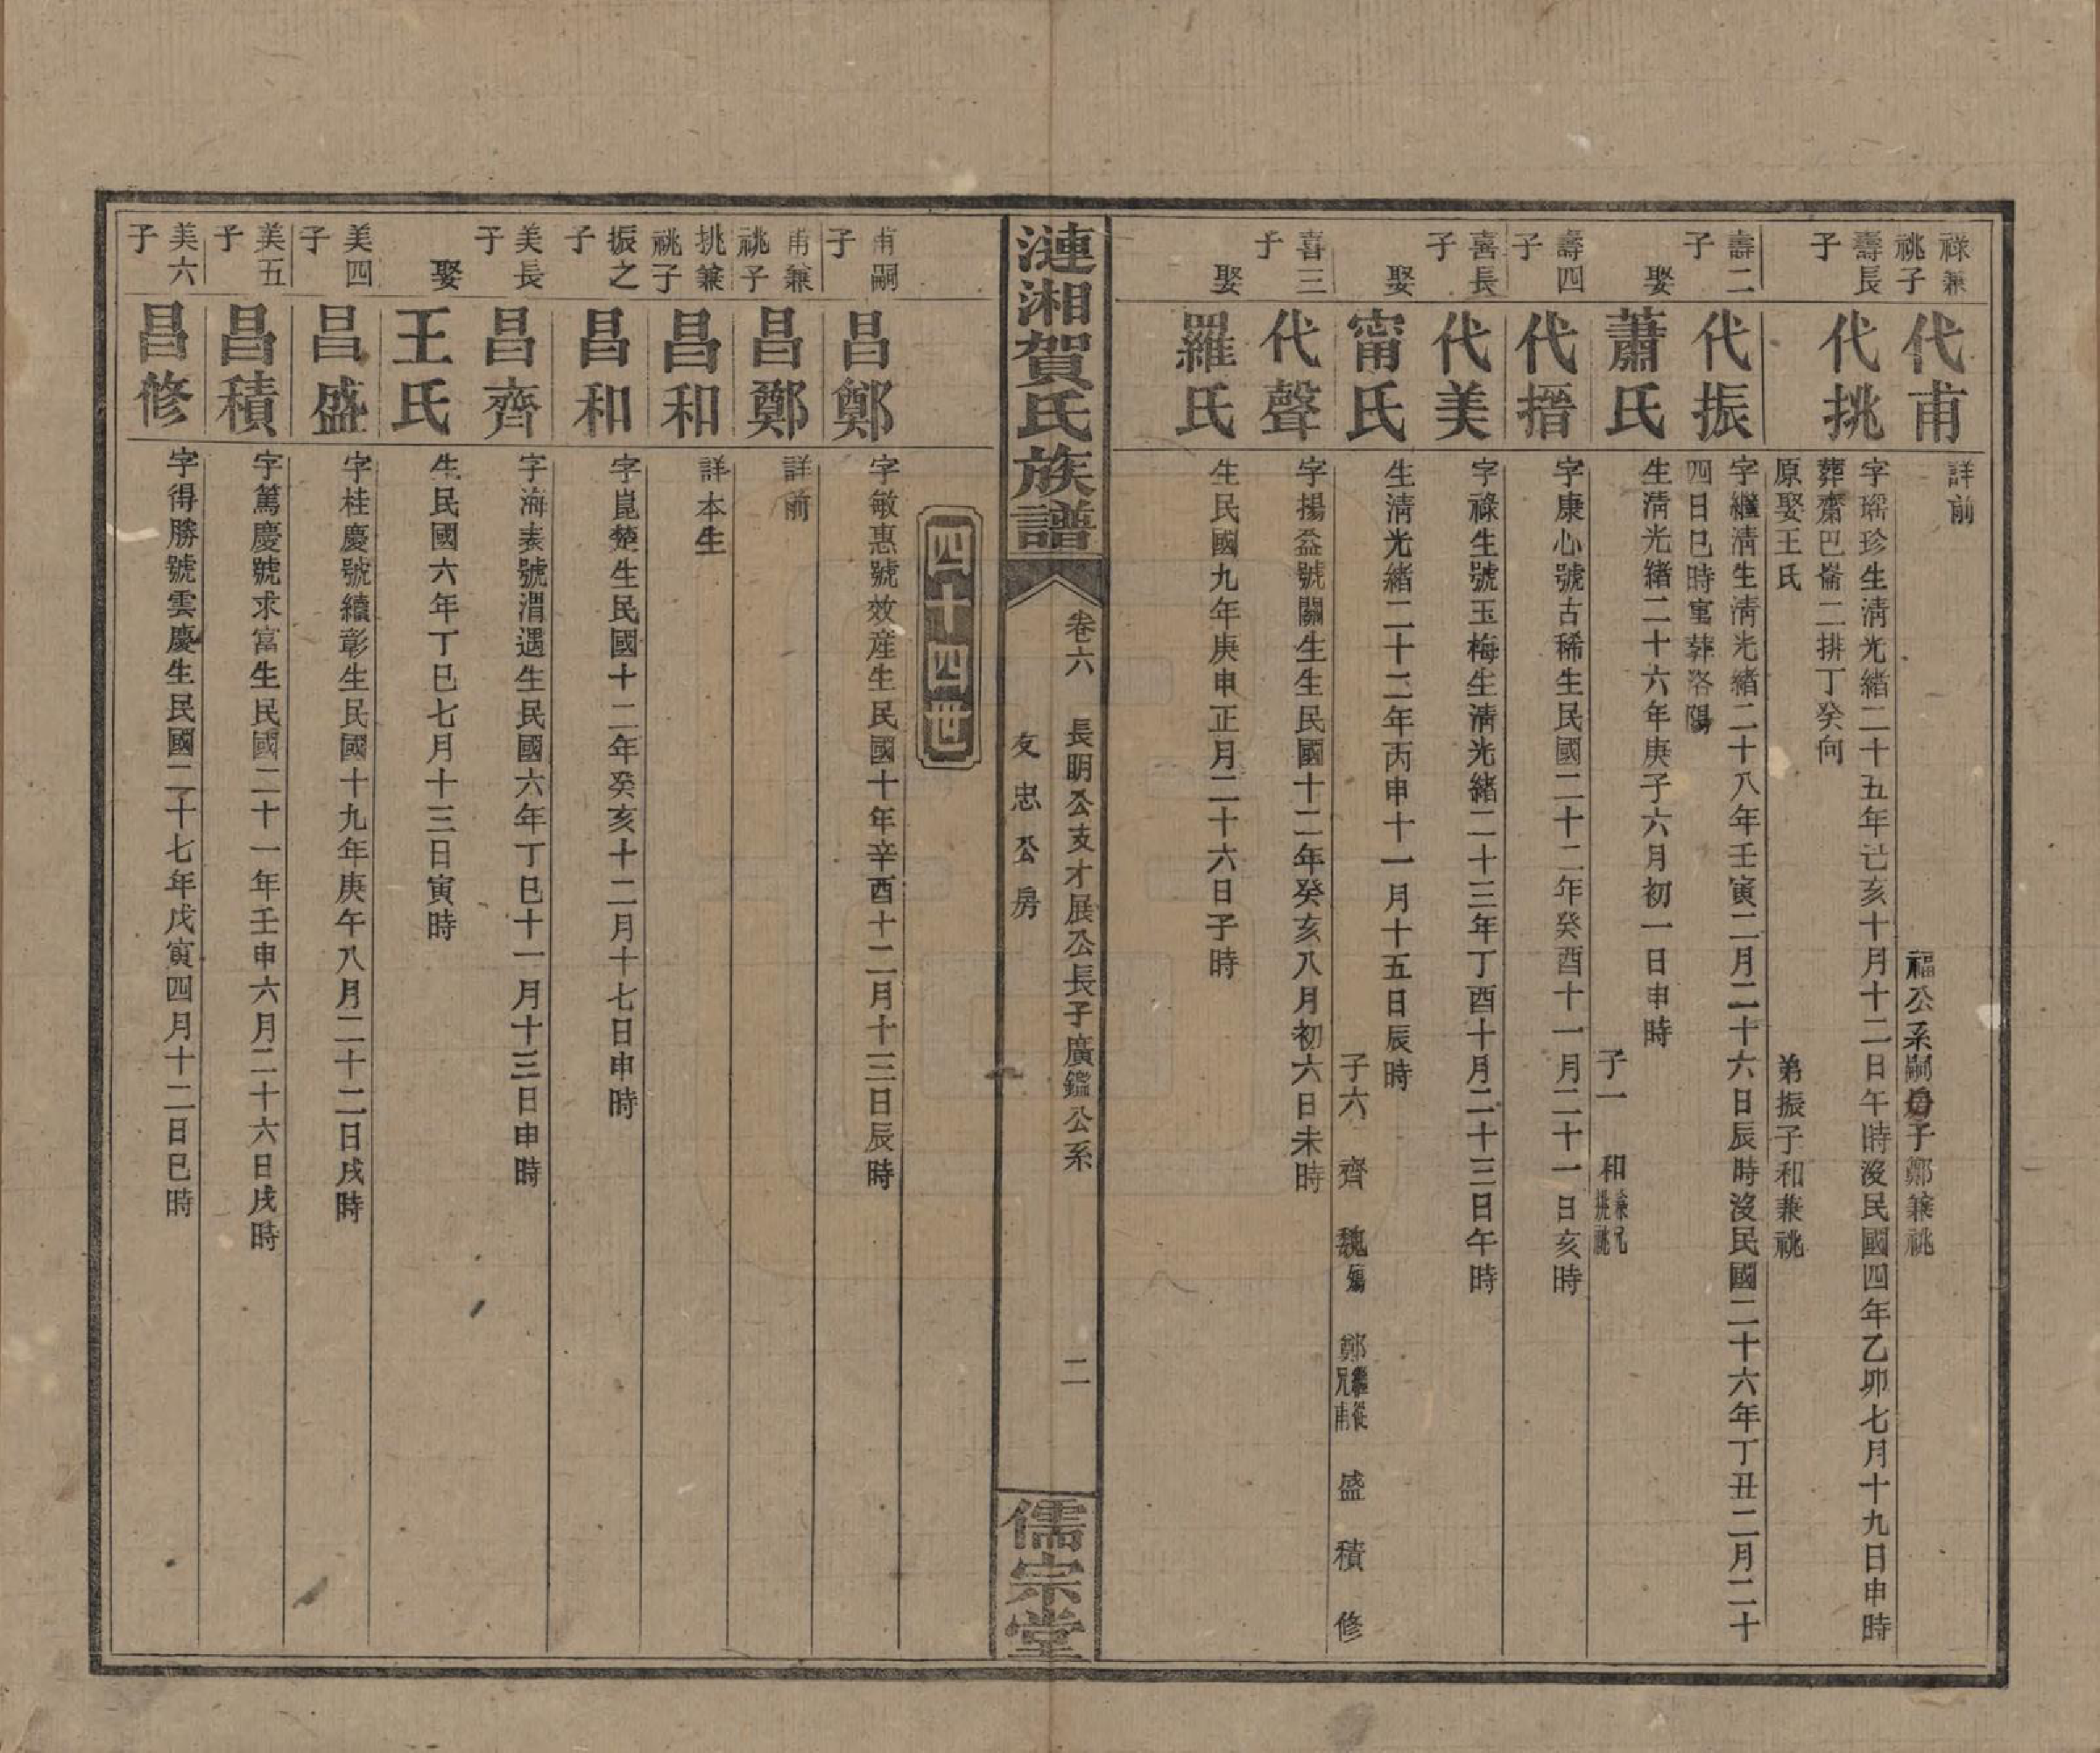 祿兼祧子
代甫
詳前
福公系嗣子鄭兼祧
壽長子
代挑
字瑶珍生清光緒二十五年亡亥十月十二日午時沒民國四年乙卯七月十九日申時
葬齋巴崙二排丁癸向
原娶王氏
弟振子和兼祧
壽二子
代振
字繼清生清光緒二十八年壬寅二月二十六日辰時沒民國二十六年丁丑二月二十
四日巳時寓葬洛陽
娶
蕭氏
生清光緒二十六年庚子六月初一日申時
子一 和兼祧兄挑
壽四子
代搢
字康心號古稀生民國二十二年癸酉十一月二十一日亥時
喜長子
代美
字祿生號玉梅生清光緒二十三年丁酉十月二十三日午時
娶
甯氏
生清光緒二十二年丙申十一月十五日辰時
子六 齊 魏殤 鄭繼從兄甫 盛 積 修
喜三子
代聲
字揚益號關生生民國十二年癸亥八月初六日未時
娶
羅氏
生民國九年庚申正月二十六日子時
漣湘賀氏族譜
卷六 長明公支才展公長子廣鑑公系
友忠公房
二
儒宗堂
四十四世
甫嗣子
昌鄭
字敏惠號效産生民國十年辛酉十二月十三日辰時
甫兼祧子
昌鄭
詳前
挑兼祧子
昌和
詳本生
振之子
昌和
字崑楚生民國十二年癸亥十二月十七日申時
美長子
昌齊
字海表號渭遇生民國六年丁巳十一月十三日申時
娶
王氏
生民國六年丁巳七月十三日寅時
美四子
昌盛
字桂慶號續彰生民國十九年庚午八月二十二日戌時
美五子
昌積
字篤慶號求富生民國二十一年壬申六月二十六日戌時
美六子
昌修
字得勝號雲慶生民國二十七年戊寅四月十二日巳時